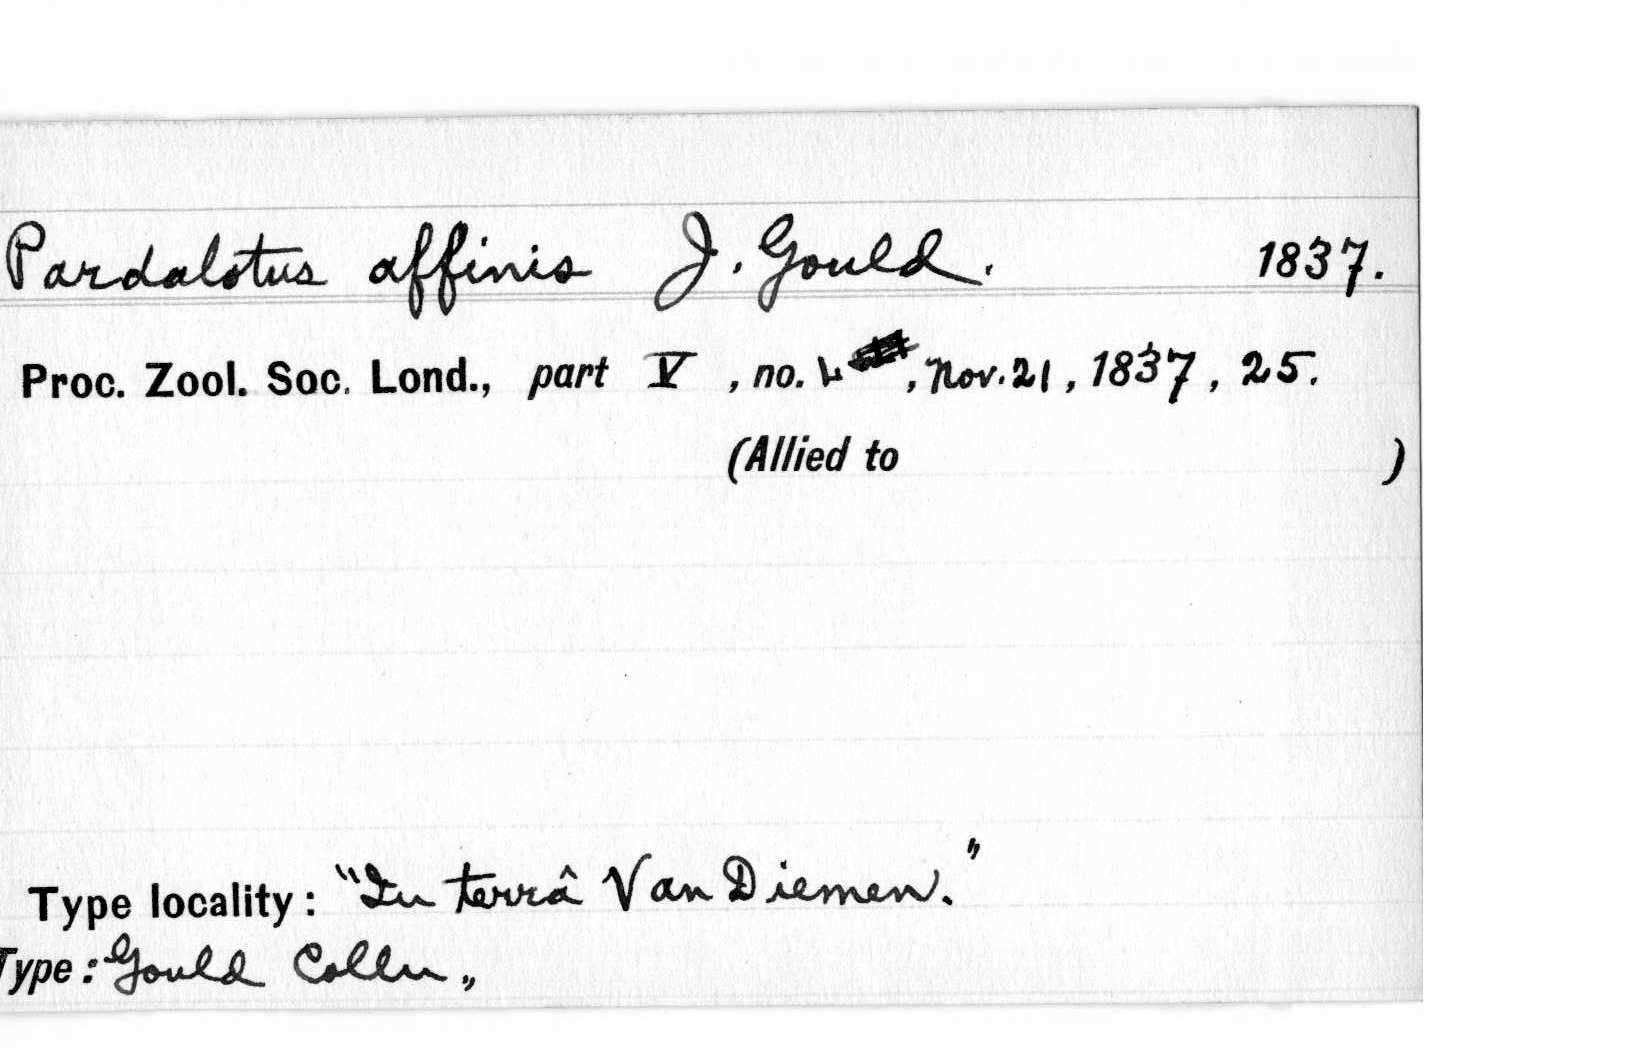 Pardalotus affinis J. Gould. 1837.
Proc. Zool. Soc. Lond., part V, no. , Nov. 21, 1837, 25.
(Allied to )
Type locality: "In terrâ Van Diemen."
Type: Gould Colln „